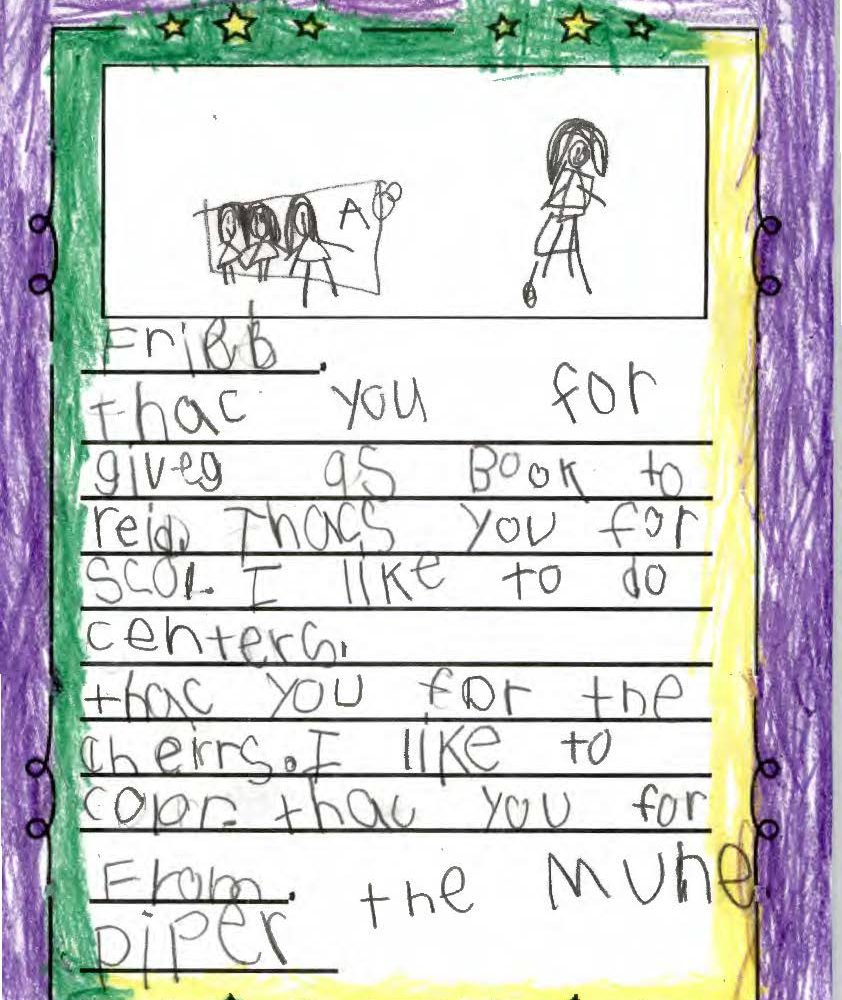 A
Frieb.
thac you for
giveg as Book to
reid. Thacs you for
scol. I like to do
centers.
thac you for the
cheirrs. I like to
color. thac you for
From. the Mune
piper